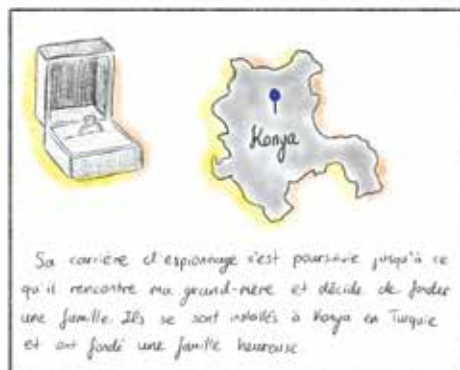 Konya
Sa carrière d'espionnage s'est poursuivie jusqu'à ce
qu'il rencontre ma grand-mère et décide de fonder
une famille. Ils se sont installés à Konya en Turquie
et ont fondé une famille heureuse.